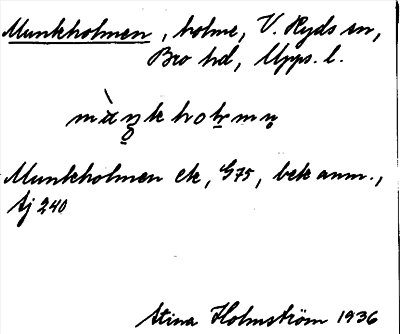 Munkholmen, holme, V. Ryds sn,
Bro hd, Upps. l.
Munkholmen ek, G75, bek anm.,
Aj 240
Stina Holmström 1936